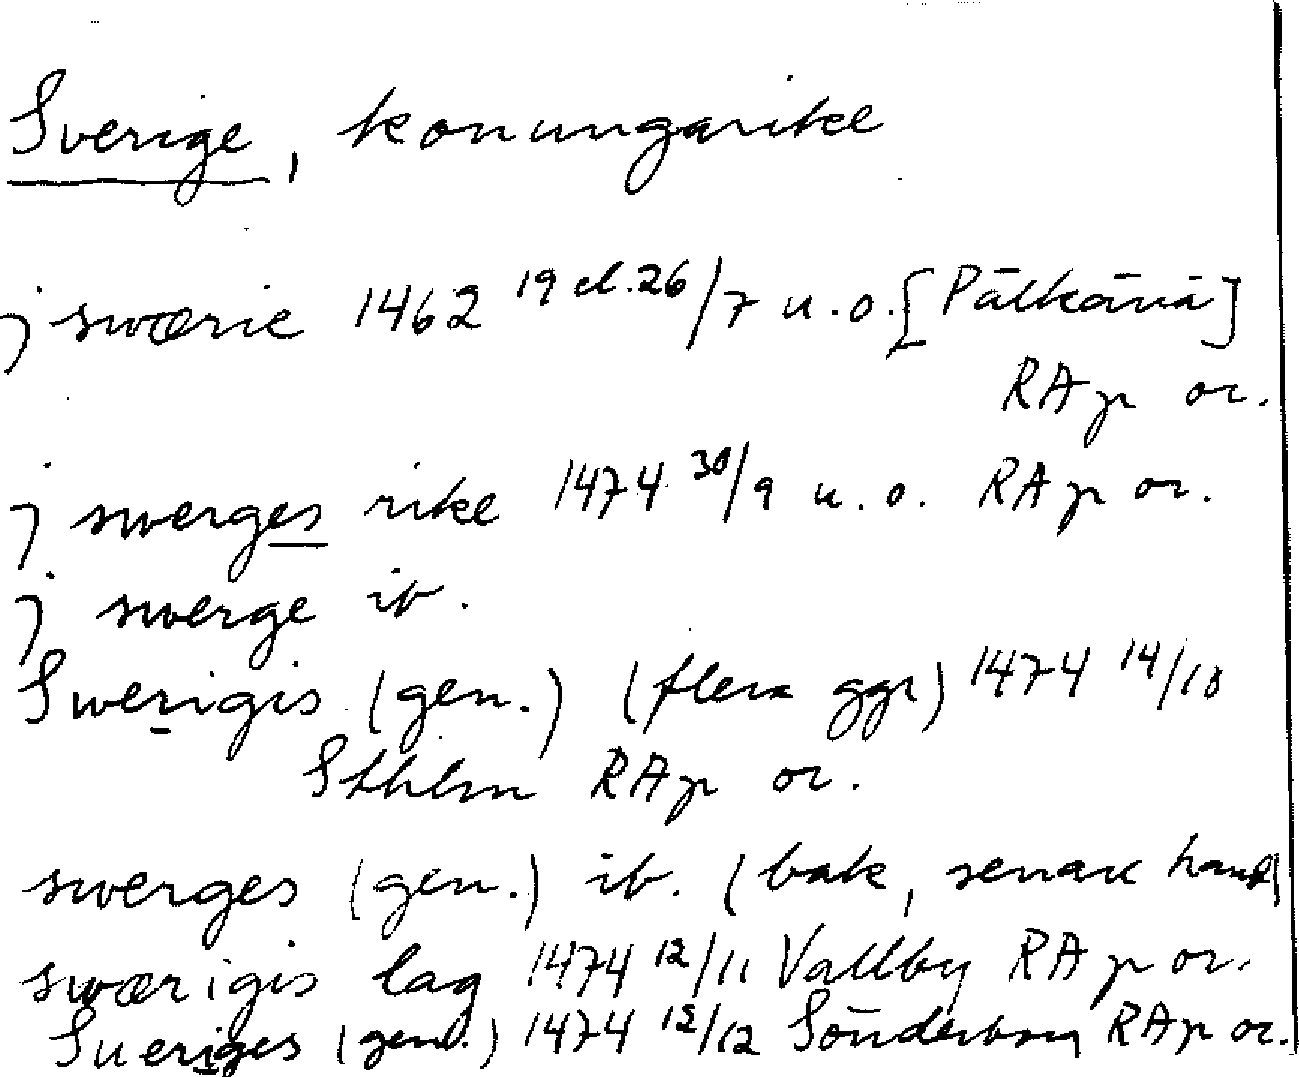 Sverige, konungarike
j swærie 1462 19 el. 26/7 u.o. [Pälkänä]
RAp or.
j swerges rike 1474 30/9 u.o. RAp or.
j swerge ib.
Swerigis (gen.) (flera ggr) 1474 14/10
Sthlm RAp or.
swerges (gen.) ib. (bak, senare hand)
swærigis lag 1474 12/11 Vallby RAp or.
Sueriges (gen.) 1474 12/12 Sönderborg RAp or.